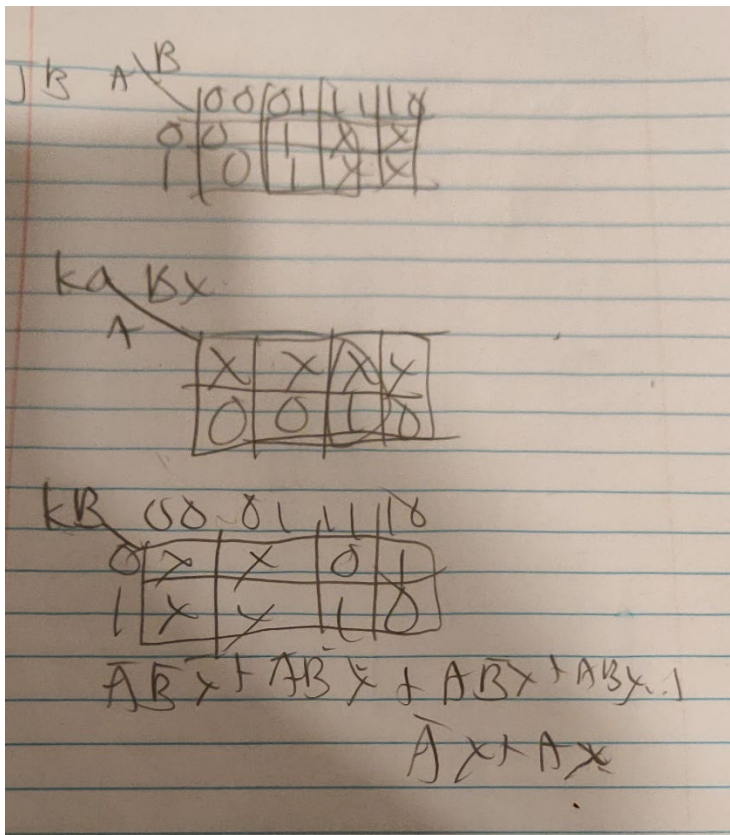 JB A\B
00 01 11 10
0 0 1 X X
1 0 1 X X
ka Bx
A
X X X X
0 0 1 0
kB 00 01 11 10
0 X X 0 1
1 X X 1 0
A̅ B̅ x̅ + A̅B x̅ + AB̅x + ABx
A̅ x + A x